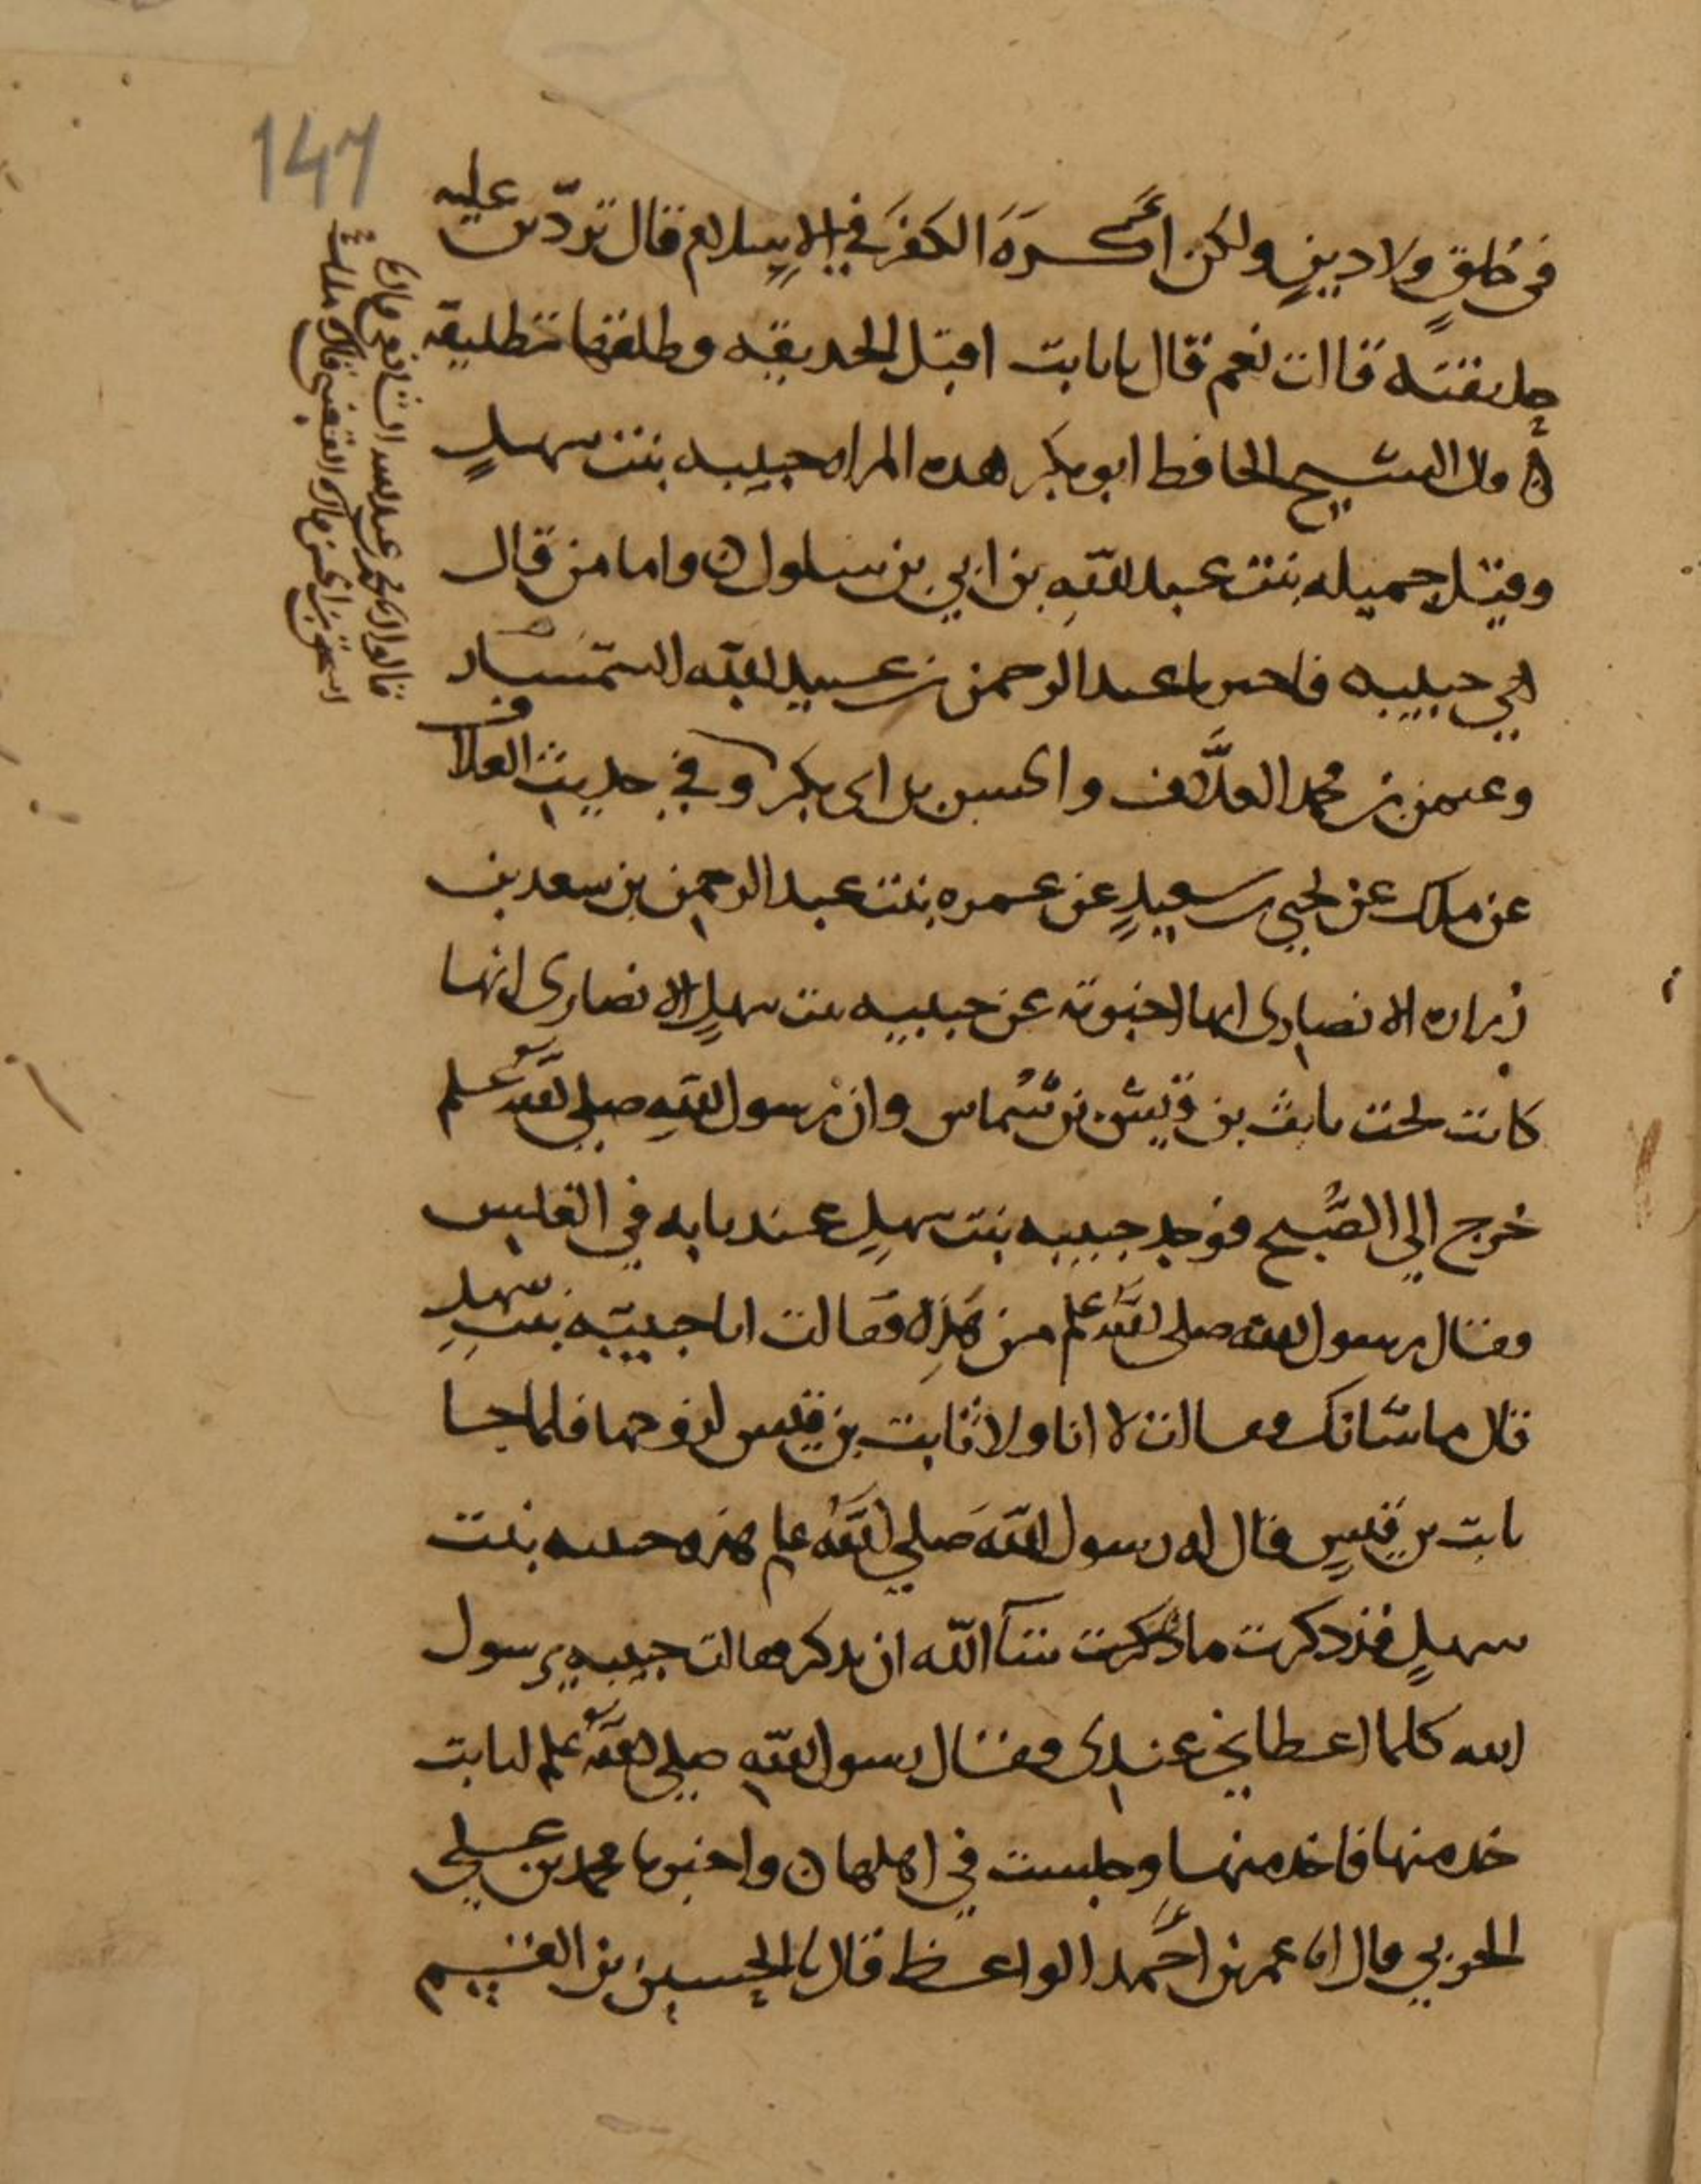 147
في خلقٍ ولا دينٍ ولكن أكره الكفر في الإسلام قال تردّين عليه
حديقته قالت نعم قال يا ثابت اقبل الحديقه وطلقها تطليقة
قال الشيخ الحافظ ابو بكر هذه المراه حبيبه بنت سهلٍ
وقيل جميله بنت عبد اللّهِ بن ابي بن سلول ن واما من قال
هي حبيبه فاخبرنا عبد الرحمن بن عبيد الله السمسار
وعثمن بن محمد العلَّاف والحسن بن ابي بكر وفي حديث العلاف
عن ملك عن يحيى بن سعيدٍ عن عمره بنت عبد الرحمن بن سعد بن
زراره الانصارى انها اخبرته عن حبيبه بنت سهلٍ الانصارى انها
كانت تحت ثابت بن قيس بن شماس وان رسول اللهِ صلى الله علىه وسلم
خرج الي الصُّبح فوجد حبيبه بنت سهلٍ عند بابه في الغلس
فقال رسول الله صلى الله علم من هَذِه فقالت انا حبيبه بنت سهلِ
قال ما شانك فقالت لا انا ولا ثابت بن قيس لزوجها فلما جا
ثابت بن قيسٍ قال له رسول اللهَ صلي اللَّهُ علم هذه حبيبه بنت
سهلٍ قد ذكرت ما شآ اللّه ان تذكر فقالت حبيبه يرسول
الله كلما اعطاني عندى فقال رسول اللّهِ صلي اللهُ علم لثابت
خذ منها فاخذ منها وجلست في اهلها ن واخبرنا محمد بن علي
الحربي قال انا عمر بن أحمد الواعظ قال نا الحسين بن القسيم
قالوا انا محمد بن عبد الله الشافعي قال نا
اسحق بن الحسن قال نا القعنبي قال قال ملك